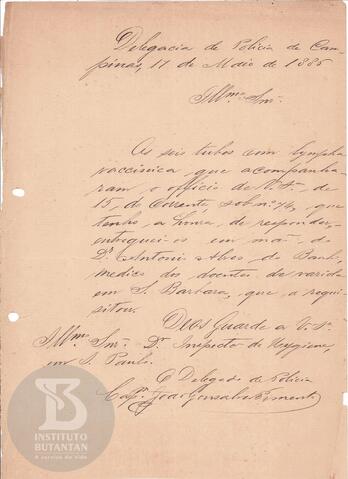 Delegacia de Policia de Cam-
pinas, 17 de Maio de 1886
Illmo. Snr.
As seis tubos com lympha
vaccinica, que acompanha-
ram o officio de V. Sª. de
15, do corrente, sob nº 74, que
tenho a honra, de responder,
entreguei os em mão, do
Dr. Antonio Alves do Banho,
medico dos doentes de varíola
em S. Barbara, que, a requi-
sitou.
Deos Guarde a V. Sª.
Illmo. Snr. Dr. Inspector de Hygiene,
em S. Paulo.
O Delegado de Policia
Capm. João Gonsalves Pimenta
INSTITUTO
BUTANTAN
A serviço da vida